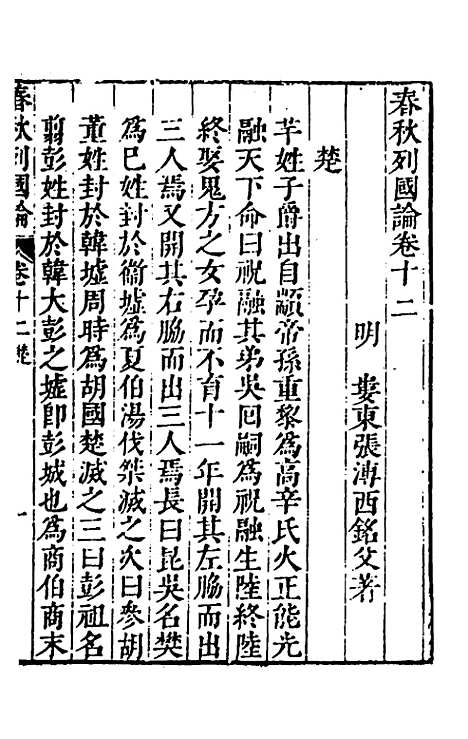 春秋列國論卷十二
明 婁東張溥西銘父著
楚
芊姓子爵出自顓帝孫重黎為高辛氏火正能光
融天下命曰祝融其弟吳回嗣為祝融生陸終陸
終娶鬼方之女孕而不育十一年開其左脇而出
三人焉又開其右脇而出三人焉長曰昆吾名樊
為巳姓封於衞墟為夏伯湯伐桀滅之次曰參胡
董姓封於韓墟周時為胡國楚滅之三曰彭祖名
翦彭姓封於韓大彭之墟卽彭城也為商伯商末
春秋列國論 卷十二 楚 一